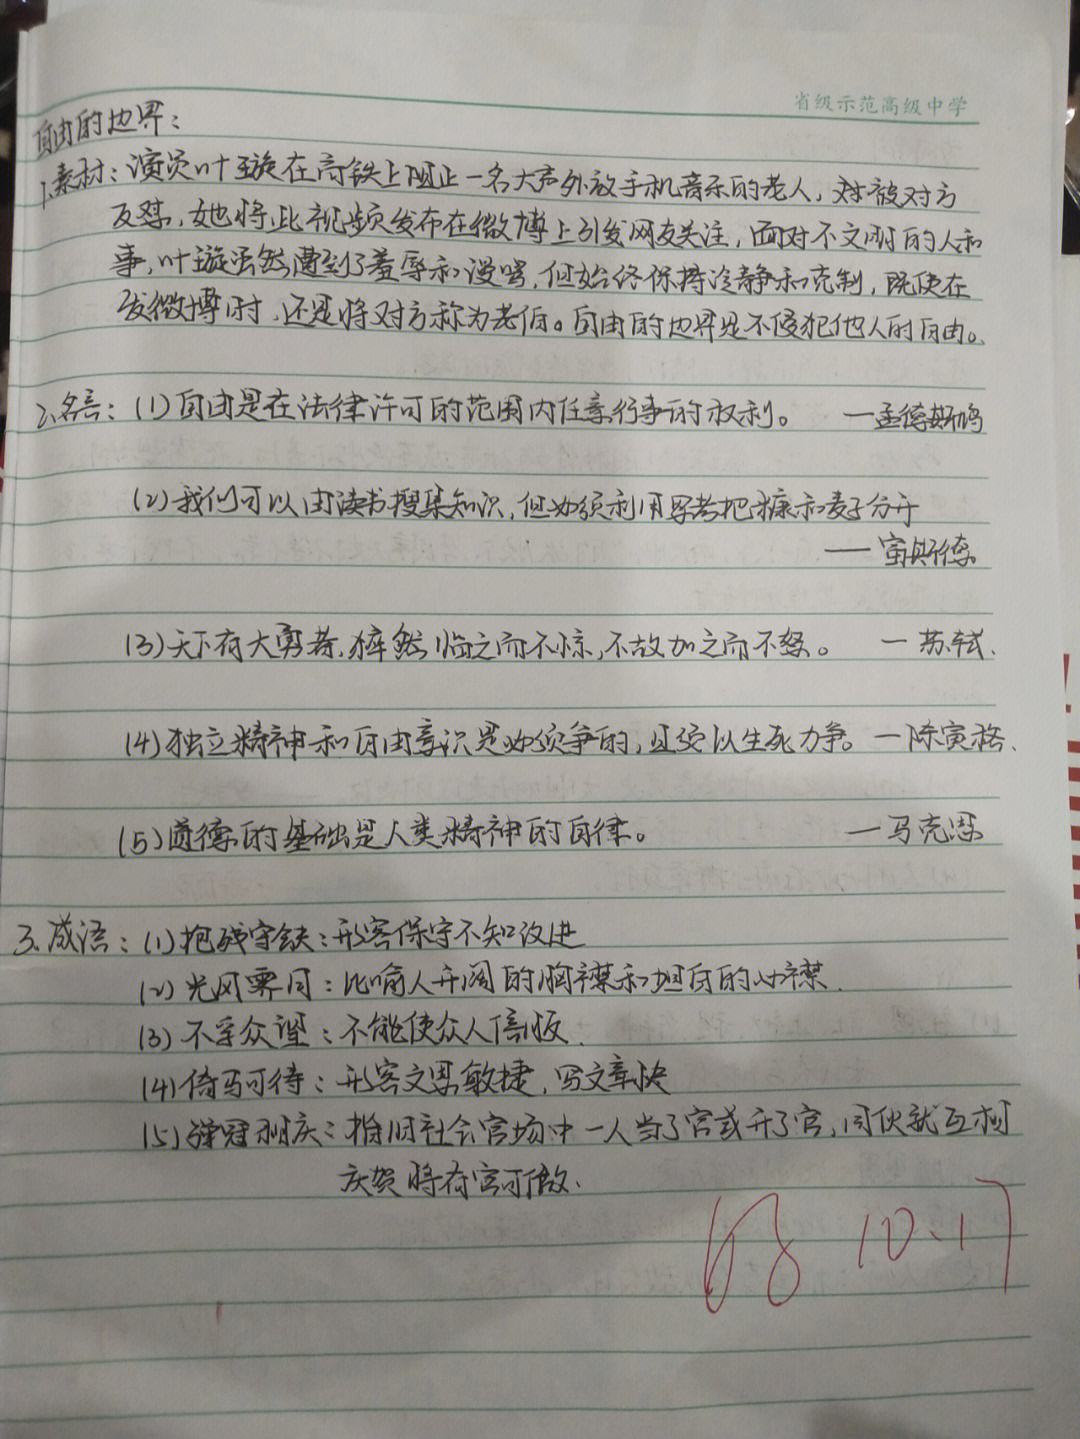 省级示范高级中学
自由的边界：
1.素材：演员叶璇在高铁上阻止一名大声外放手机音乐的老人，对被对方
反怼，她将此视频发布在微博上引发网友关注，面对不文明的人和
事，叶璇虽然遭到了羞辱和谩骂，但始终保持冷静和克制，既使在
发微博时，还是将对方称为老伯。自由的边界是不侵犯他人的自由。
2.名言：(1)自由是在法律许可的范围内任意行事的权利。 —孟德斯鸠
(2)我们可以由读书搜集知识，但必须利用思考把糠和麦子分开
——富斯德
(3)天下有大勇者，猝然临之而不惊，不故加之而不怒。 —苏轼.
(4)独立精神和自由意识是必须争的，且须以生死力争。—陈寅恪.
(5)道德的基础是人类精神的自律。 —马克思
3.成语：(1)抱残守缺：形容保守不知改进
(2)光风霁月：比喻人开阔的胸襟和坦白的心襟.
(3)不孚众望：不能使众人信服.
(4)倚马可待：形容文思敏捷，写文章快
(5)弹冠相庆：指旧社会官场中一人当了官或升了官，同伙就互相
庆贺将有官可做.
10.17